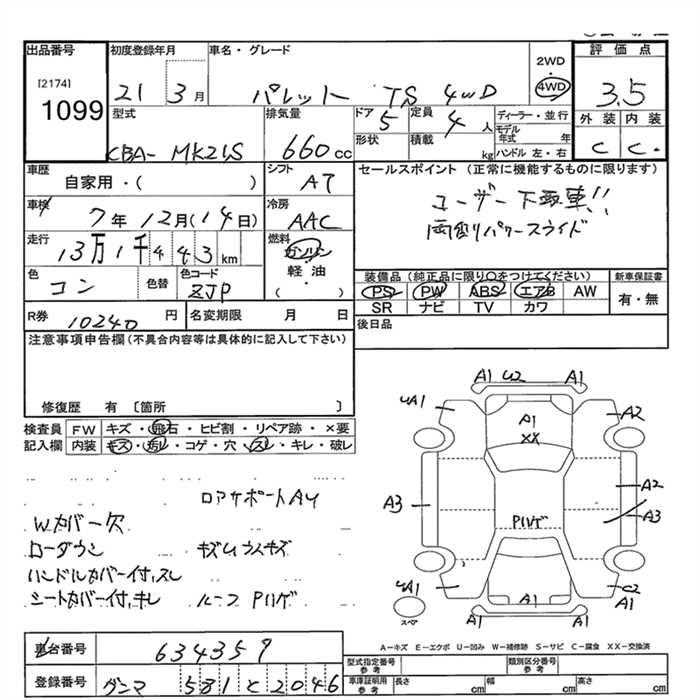 出品番号
[2174]
1099
初度登録年月
21 3月
車名・グレード
パレット TS 4WD
2WD
4WD
評価点
3.5
外装 内装
C C
型式
CBA- MK21S
排気量
660cc
ドア 5
形状
定員 4人
積載 kg
ディーラー・並行
モデル年式 年
ハンドル 左・右
車歴
自家用・( )
シフト AT
車検
7年12月(14日)
冷房 AAC
走行
13万1千443km
燃料
ガソリン
軽油
( )
色 コン 色替
色コード ZJP
R券 10240円
名変期限 月 日
セールスポイント (正常に機能するものに限ります)
ユーザー下取車!!
両側パワースライド
装備品(純正品に限り○をつけてください)
PS PW ABS エアB AW
SR ナビ TV カワ
新車保証書
有・無
後日品
注意事項申告欄(不具合内容等は具体的に記入して下さい)
修復歴 有 〔箇所 〕
検査員記入欄
FW キズ・飛石・ヒビ割・リペア跡・×要
内装 キズ・汚レ・コゲ・穴・スレ・キレ・破レ
ロアサポートAU
Wカバー欠
ローダウン キズUラスキズ
ハンドルカバー付,スレ
シートカバー付,キレ ルーフ Pハゲ
A1 W2 A1
A1
A2
A1
XX
A3
A2
A3
Pハゲ
A1
C2
A1
A1
A1 A1
スペア
A-キズ E-エクボ U-凹み W-補修跡 S-サビ C-腐食 XX-交換済
車台番号 634359
登録番号 グンマ 581 と 2046
型式指定番号 参考
類別区分番号 参考
車庫証明用 参考
長さ cm
幅 cm
高さ cm